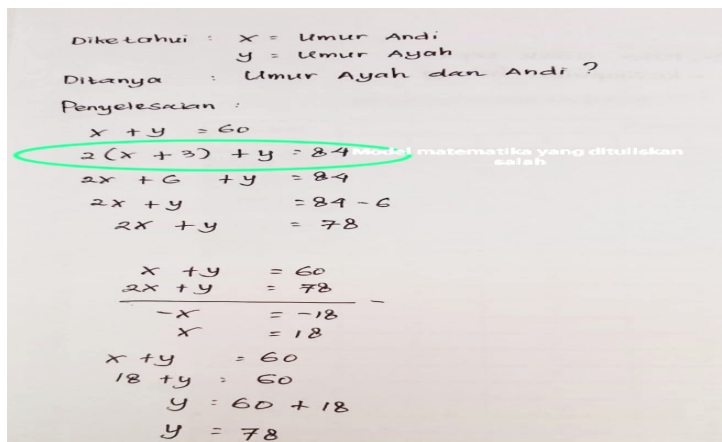 Diketahui : x = Umur Andi
y = Umur Ayah
Ditanya : Umur Ayah dan Andi ?
Penyelesaian :
x + y = 60
2 (x + 3) + y = 84 Model matematika yang dituliskan salah
2x + 6 + y = 84
2x + y = 84 - 6
2x + y = 78
x + y = 60
2x + y = 78 -
-x = -18
x = 18
x + y = 60
18 + y = 60
y = 60 + 18
y = 78